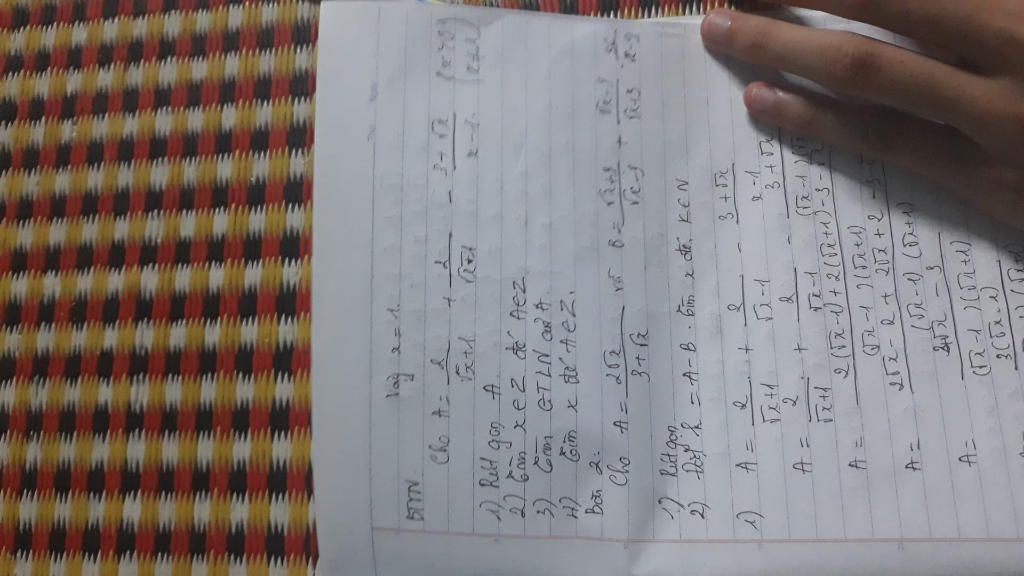 Vậy x = 1
BTVN.
Cho A = \frac{2}{\sqrt{x}+1} + \frac{2}{\sqrt{x}-1} - \frac{3+\sqrt{x}}{x-1}
1) Rút gọn A
2) Tìm x ∈ Z để A ∈ Z
3) Tìm GTLN của A
4) Tìm x để A ∈ Z.
Bài 2:
Cho A = \frac{2\sqrt{x}}{3+\sqrt{x}} và B =
1) Rút gọn
2) Đặt K = A - B. Tìm x để K ∈ N
1) A = \frac{2}{\sqrt{x}+1} + \frac{2}{\sqrt{x}-1} - \frac{3+\sqrt{x}}{x-1}
A = \frac{2}{\sqrt{x}+1} + \frac{2}{\sqrt{x}-1} - \frac{3+\sqrt{x}}{(\sqrt{x}-1)(\sqrt{x}
A = \frac{2(\sqrt{x}-1)+2(\sqrt{x}+1)-3-\sqrt{x}}{(\sqrt{x}-1)(\sqrt{x}+1)}
A = \frac{2\sqrt{x}-2+2\sqrt{x}+2-3-}{(\sqrt{x}-1)(\sqrt{x}+1)}
A = \frac{3\sqrt{x}-3}{(\sqrt{x}-1)(\sqrt{x}+1)}
3(\sqrt{x}-1)